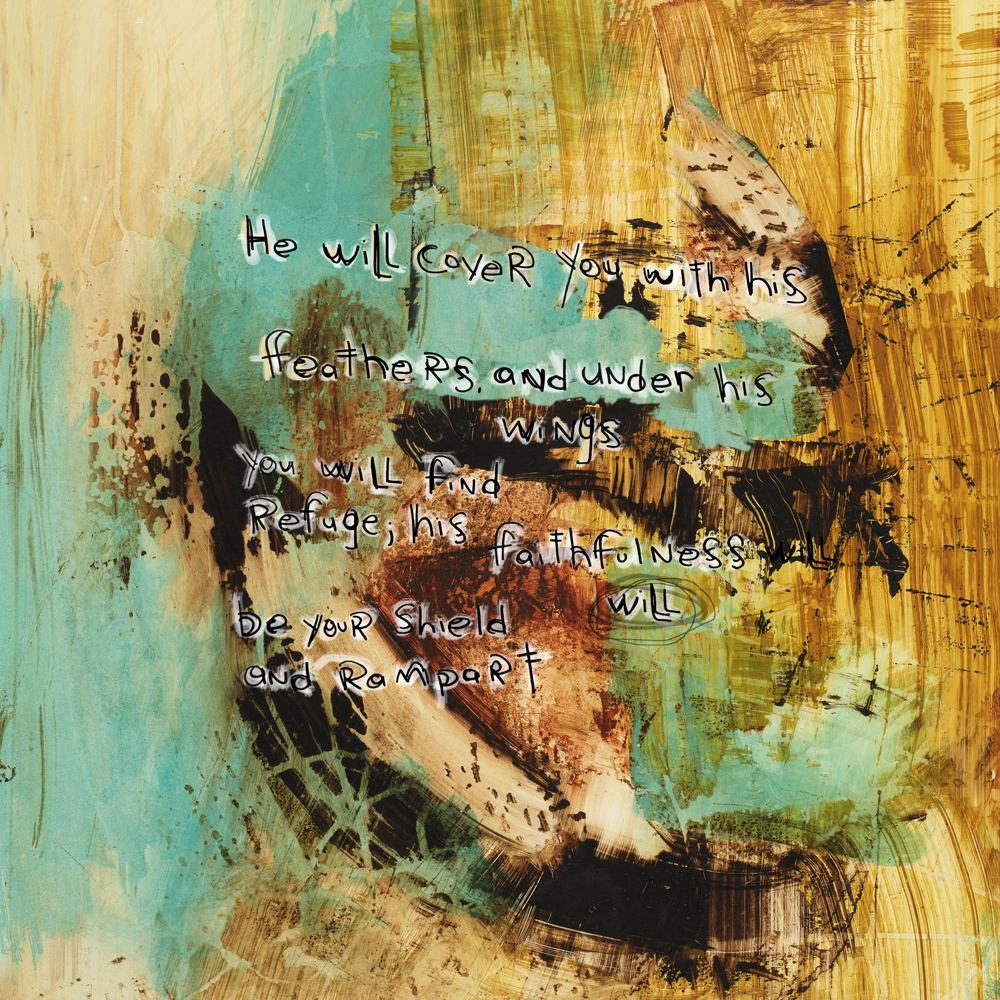 He will cover you with his
feathers, and under his
wings
you will find
Refuge; his
faithfulness will
will
be your shield
and Rampart